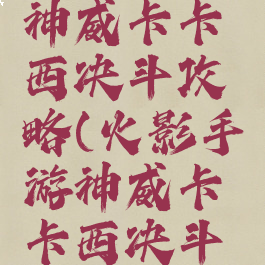 神威卡卡
西决斗攻
略(火影手
游神威卡
卡西决斗